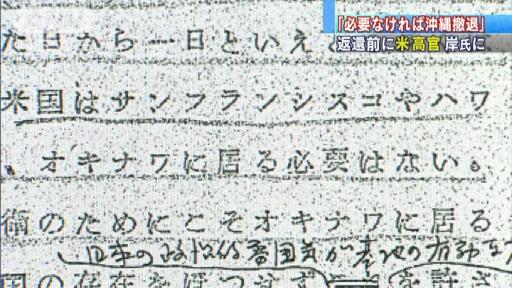 「必要なければ沖縄撤退」
返還前に米高官 岸氏に
た日から一日といえ
米国はサンフランシスコやハワ
、オキナワに居る必要はない。
衛のためにこそオキナワに居る
日本の政治的雰囲気が基地の有効な
国の存在をほっせず を許さ